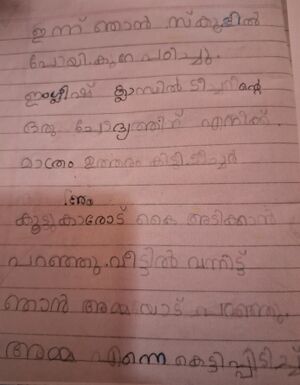 ഇന്ന് ഞാൻ സ്കൂളിൽ
പോയി.കുറേ പഠിച്ചു.
ഇംഗ്ലീഷ് ക്ലാസിൽ ടീച്ചറിന്റെ
ഒരു ചോദ്യത്തിന് എനിക്ക്
മാത്രം ഉത്തരം കിട്ടി.ടീച്ചർ
കൂട്ടുകാരോട് കൈ അടിക്കാൻ
പറഞ്ഞു.വീട്ടിൽ വന്നിട്ട്
ഞാൻ അമ്മയോട് പറഞ്ഞു.
അമ്മ എന്നെ കെട്ടിപ്പിടിച്ച്